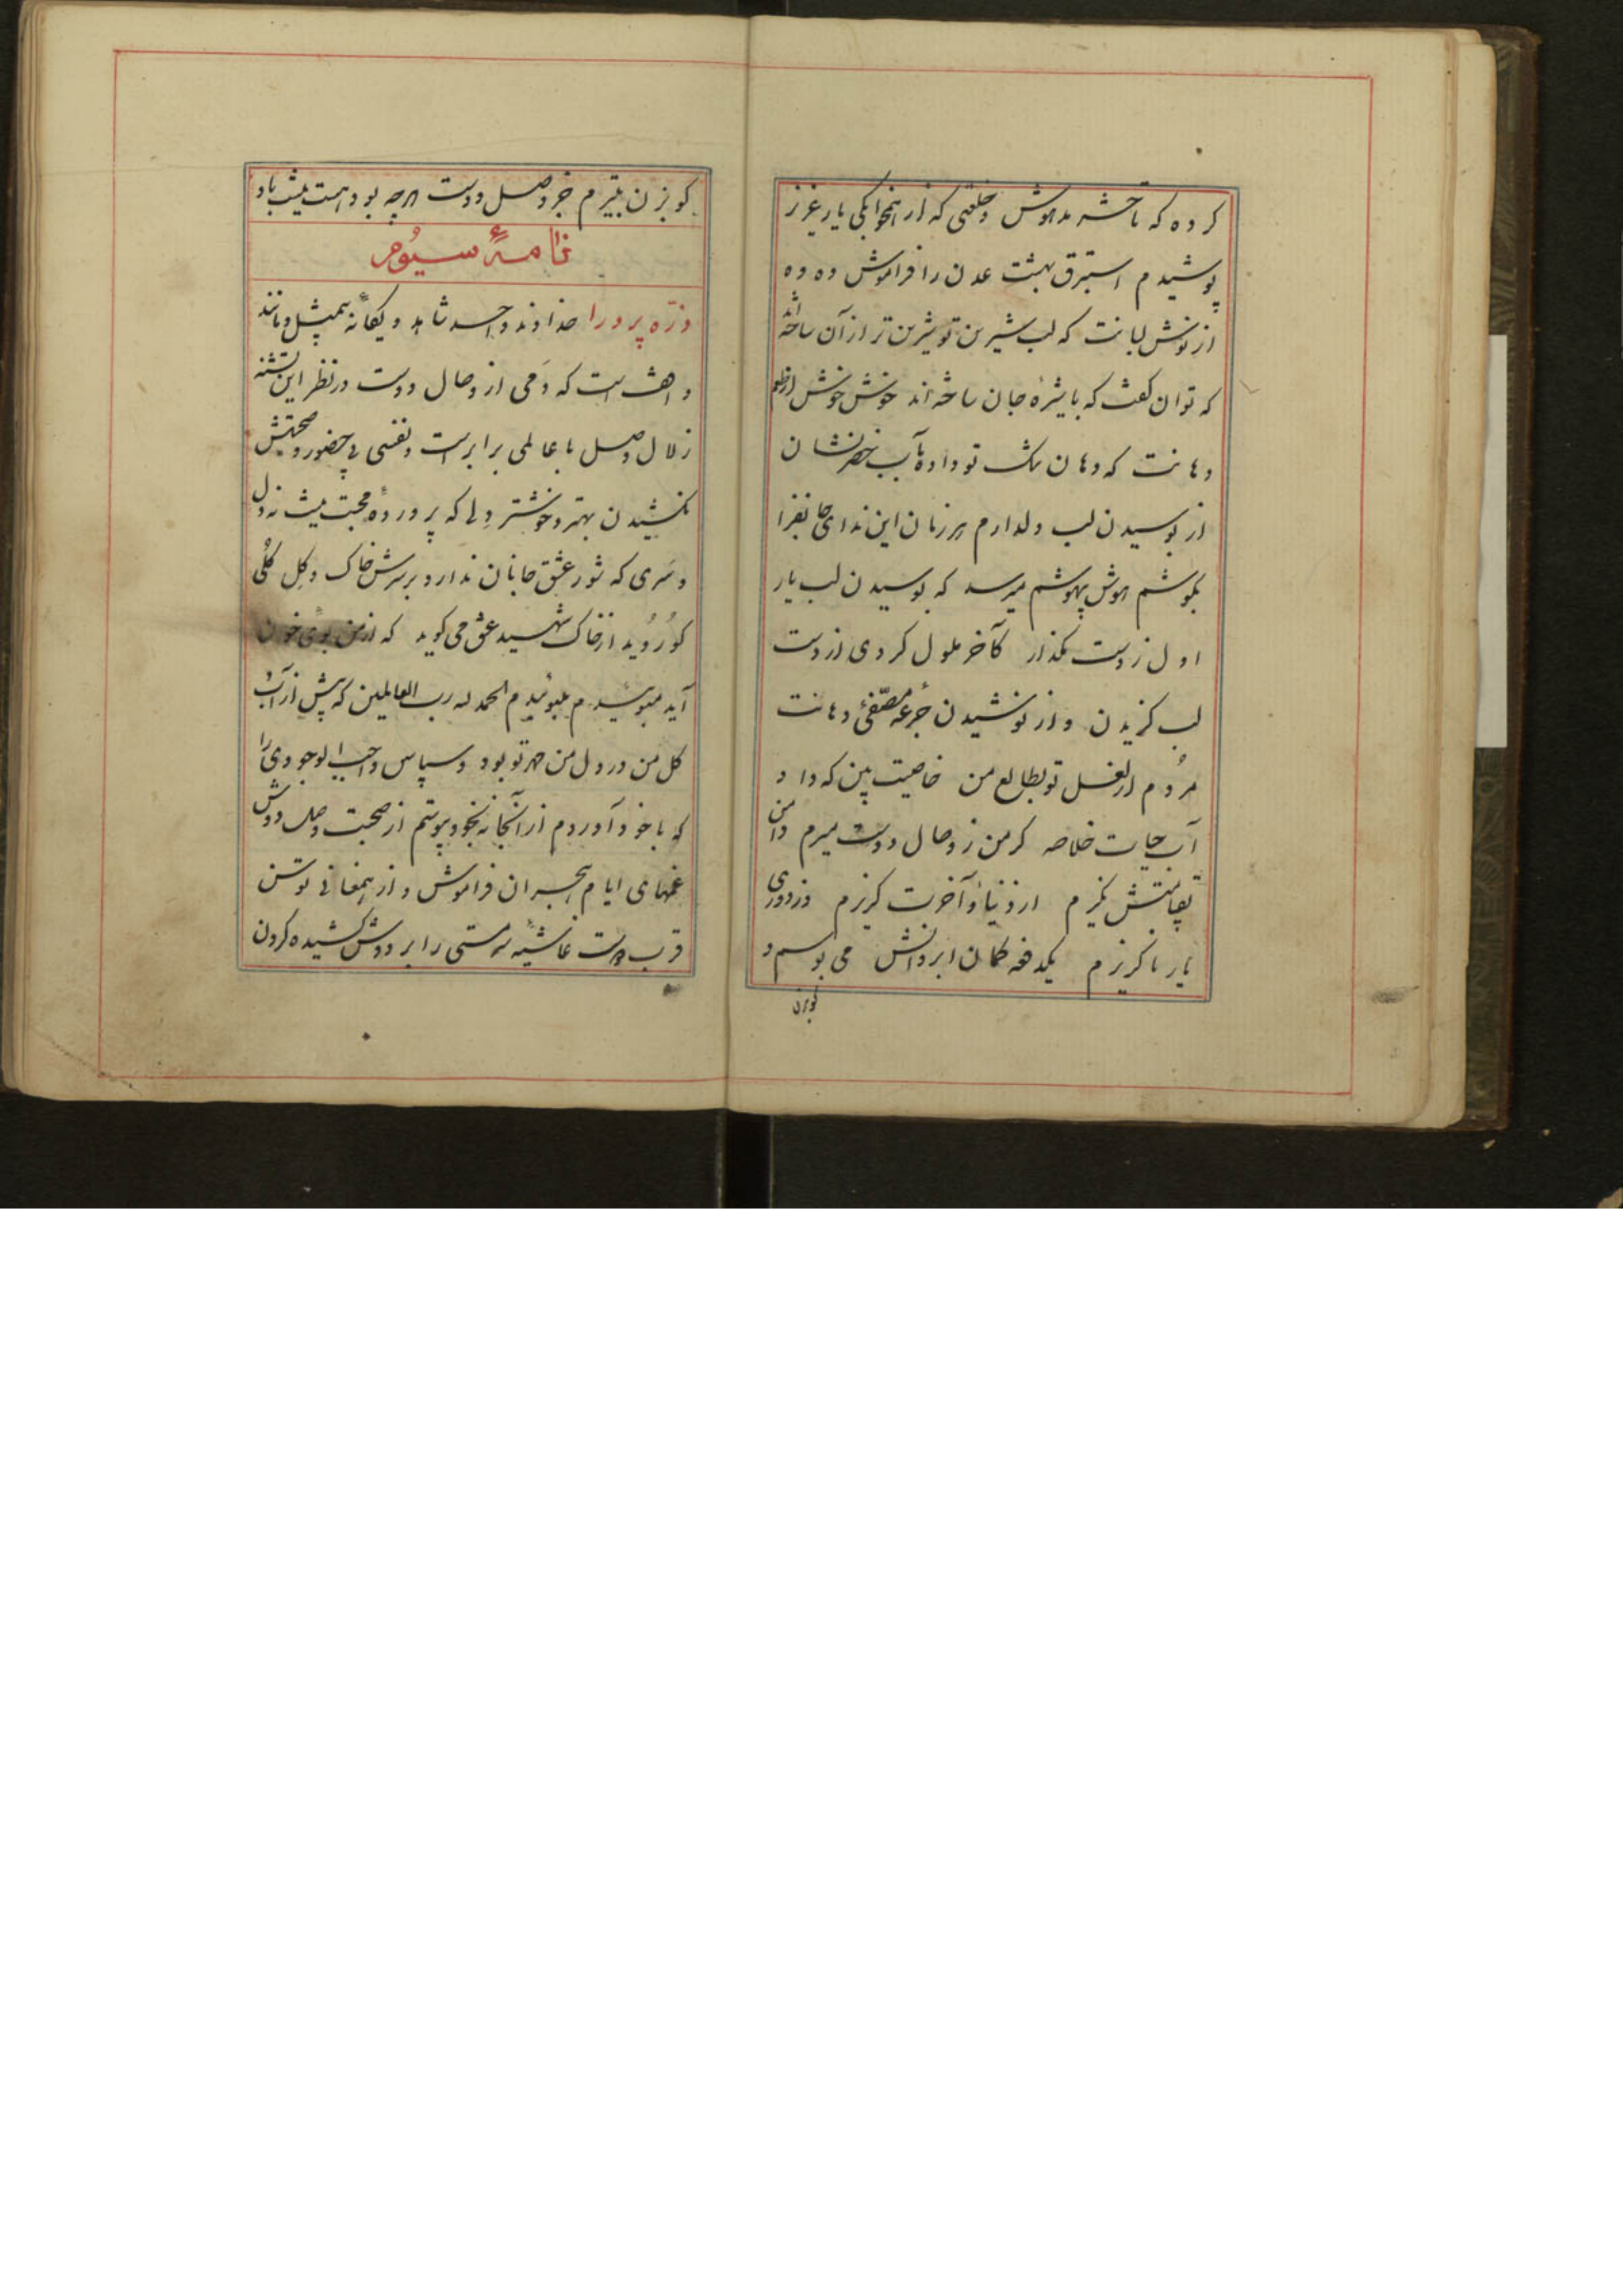 کرده که تا حشر مدهوش و خلعتی که از همخوابکی یار عزیز
پوشیدم استبرق بهشت عدن را فراموش وه وه
از نوش لبانت که لب شیرین تو شیرین تر از آن ساخته اند
که توان کفت که با شیرهٔ جان ساخته اند خوش خوش از طعم
دهانت که دهان تو داده بآب خضر نشان
از بوسیدن لب دلدارم هر زمان این ندای جانفزا
بکوشم هوش بیهوشم میرسد که بوسیدن لب یار
اول ز دست مکذار کآخر ملول کردی از دست
لب کزیدن و از نوشیدن جرعهٔ مصفّی دهانت
مُردم از لعل تو بطالع من خاصیت بین که داد
آب حیات خلاصه کر من ز وصال دوست میرم دامن
بقیامتش نکیرم از دنیا و آخرت کریزم و ز دوری
یار ناکریزم یکدفعه کمان ابروانش می بوسم و
کو بزن
کو بزن بتیرم جز وصل دوست هرچه بود هست میشه باد
نامهٔ سیوم
ذرّه پرورا خداوند واحد شاهد و یکانهٔ بیمثل و مانند
است که دمی از وصال دوست در نظر این تشنه
زلال وصل با عالمی برابر است و نفسی بی حضور و صحبتش
نکشیدن بهتر و خوشتر دلی که پروردهٔ محبت نیست نه دل
و سری که شور عشق جانان ندارد بر سرش خاک و کِل کُلی
کو رُوید از خاک شهید عشق می کوید که از من بوی خون
آید مبوئیدم مبوئیدم الحمد لله رب العالمین که پیش از آب و
کل من در دل من مهر تو بود و سپاس واجب الوجودی را
که با خود آوردم از آنجا نه بخود بربستم از صحبت وصل دوش
غمهای ایام هجران فراموش و از همعنانی توسن
قرب دوست غاشیه سرمستی را بر دوش کشیده کردون